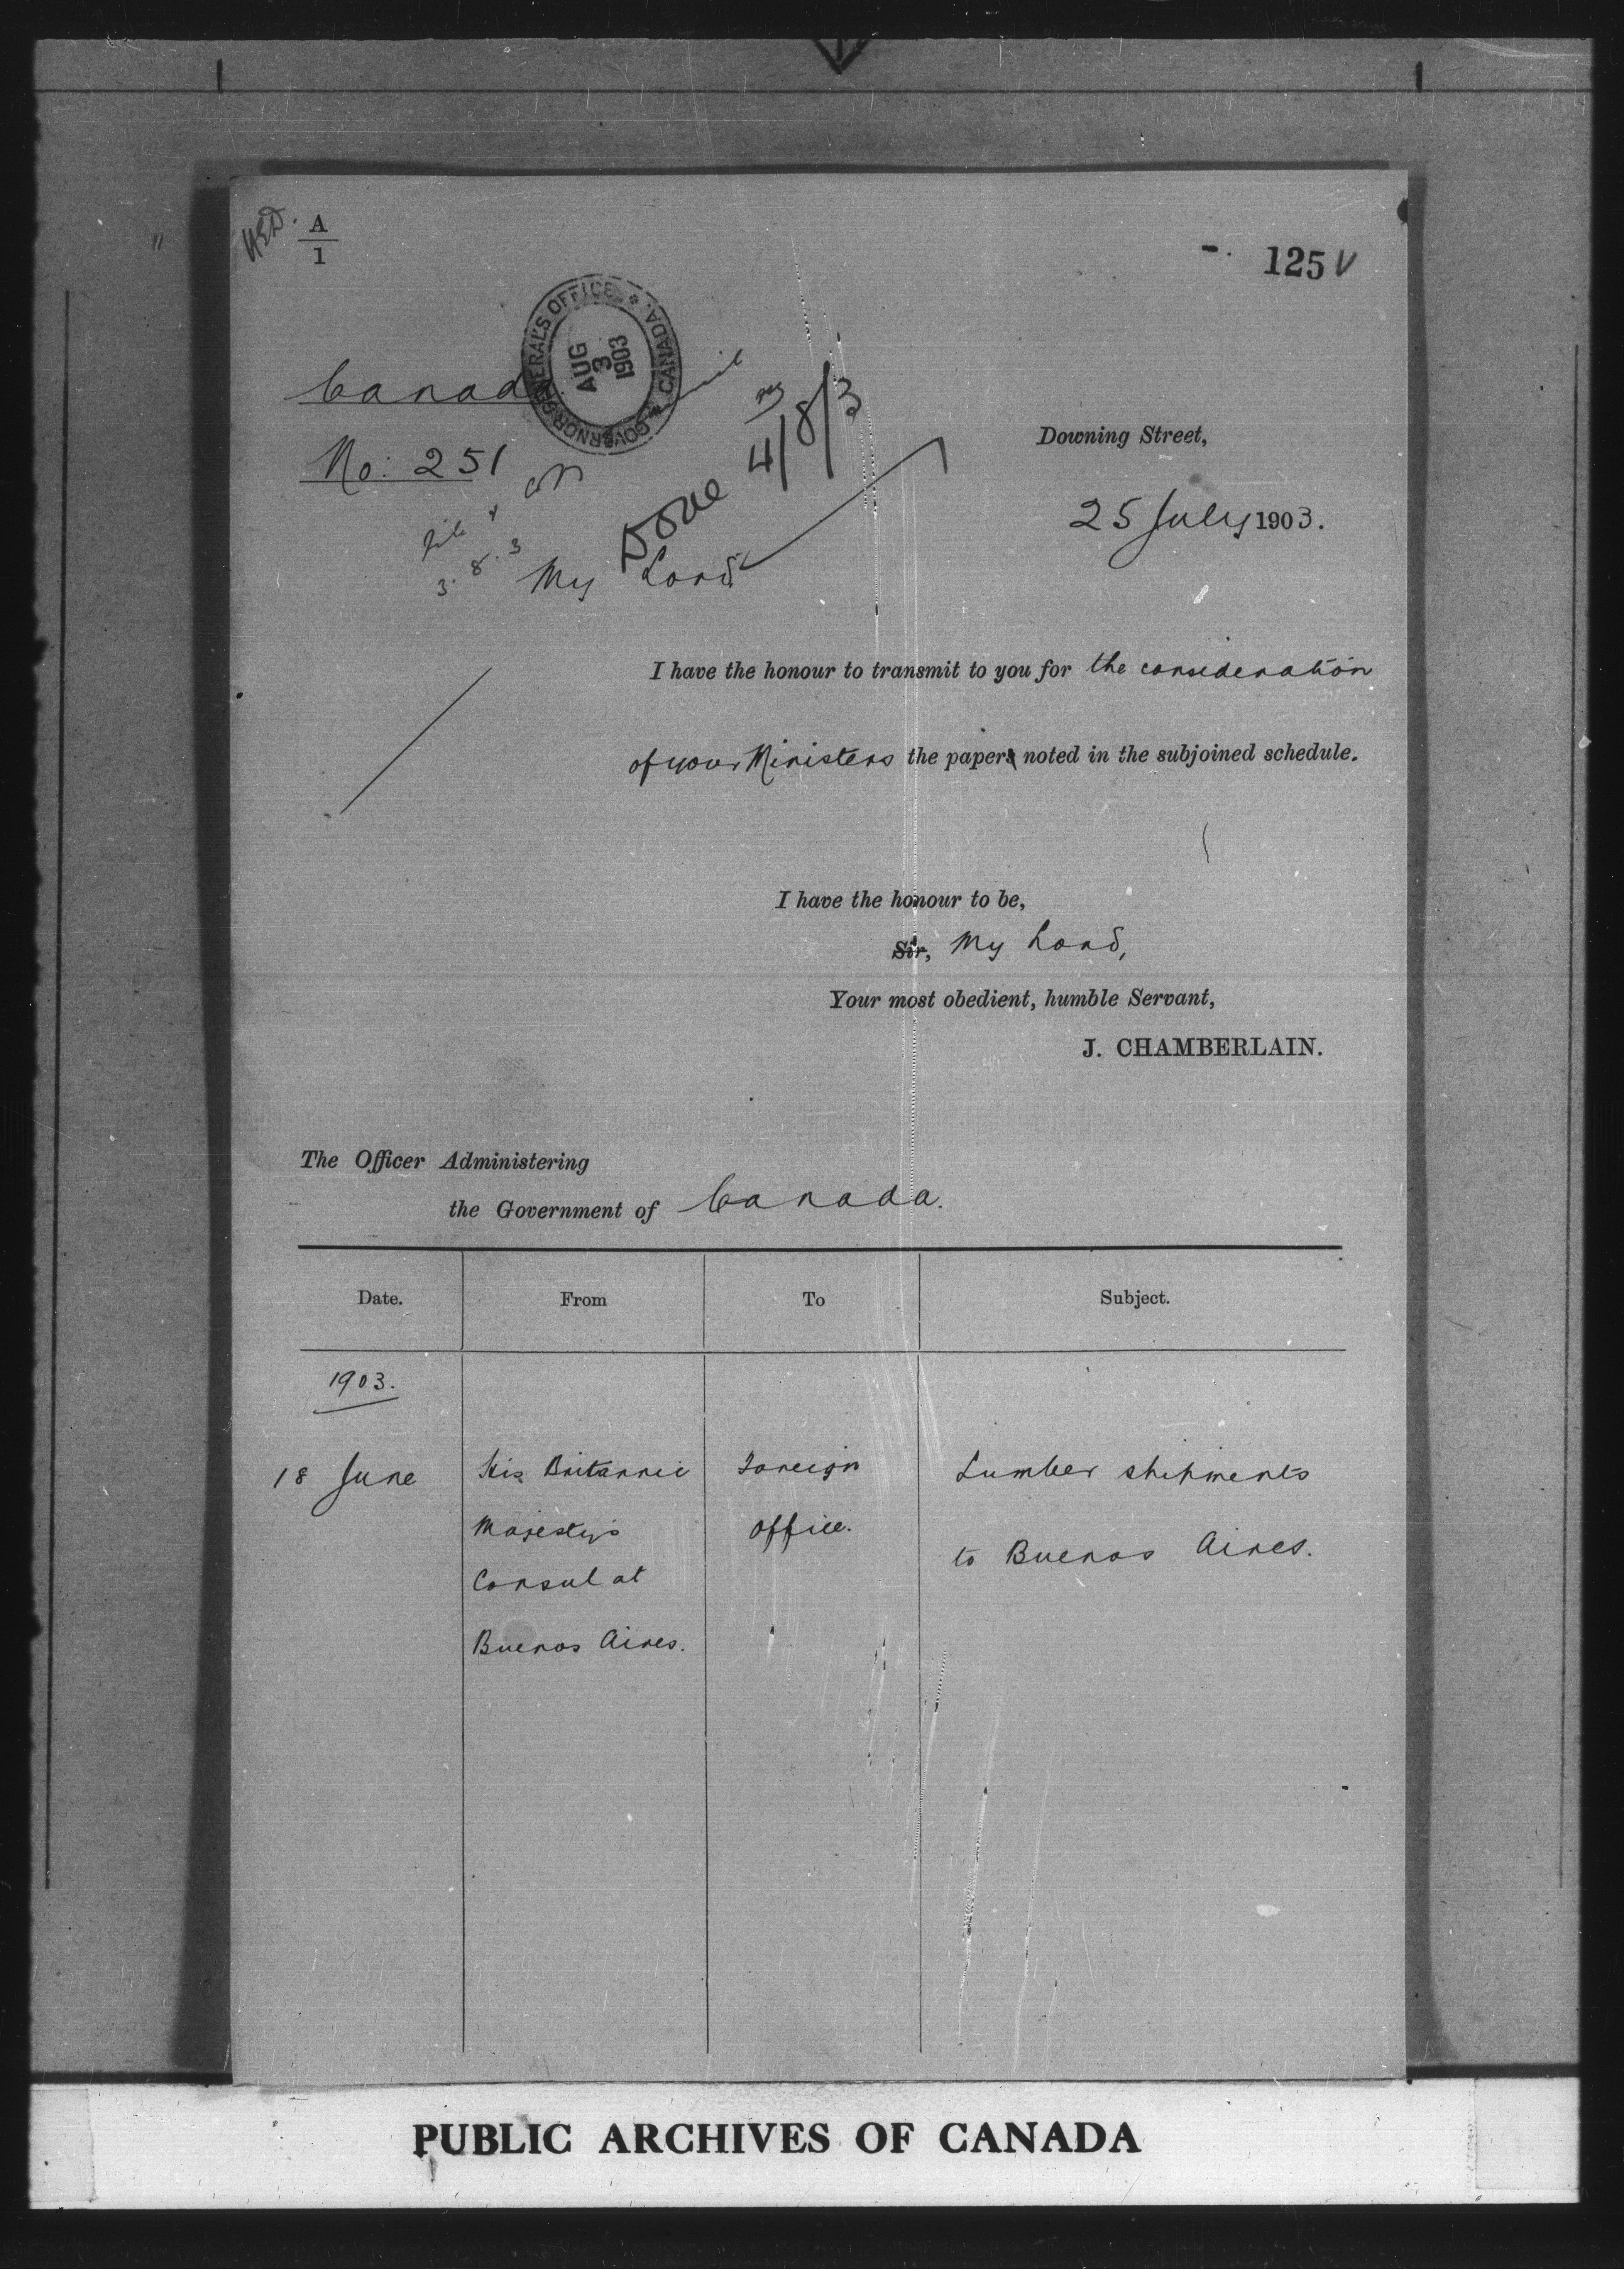 HED. A
1
125 V
GOVERNOR GENERAL'S OFFICE * CANADA *
AUG
3
1903
Canada
No: 251
4/8/3
Done
3.8.3
Downing Street,
25 July 1903.
My Lord
I have the honour to transmit to you for the consideration
of your Ministers the paper noted in the subjoined schedule.
I have the honour to be,
Sir, My Lord,
Your most obedient, humble Servant,
J. CHAMBERLAIN.
The Officer Administering
the Government of Canada.
Date. From To Subject.
1903.
18 June His Britannic Foreign Lumber shipments
Majesty's Office. to Buenos Aires.
Consul at
Buenos Aires.
PUBLIC ARCHIVES OF CANADA